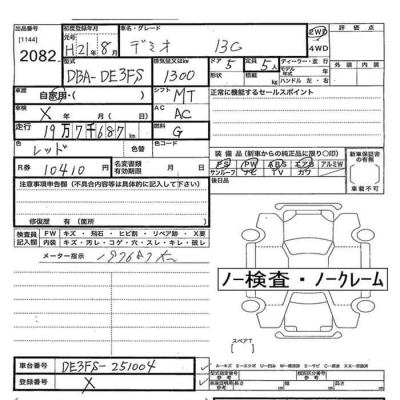 出品番号 初度登録年月 車名・グレード 評価点
[1144] 元号
2082 H21年8月 デミオ 13C 2WD 4WD
型式 排気量又はkW ドア 定員 ディーラー・並行 外装 内装
DBA-DE3FS 1300 5 5人 モデル年式 年
形状 積載 kg ハンドル 左・右
車歴 自家用・( ) シフト MT 正常に機能するセールスポイント
車検 X 年 月( 日) AC AC
走行 19万7千687km 燃料 G
色 レッド 色替
装備品 (新車からの純正品に限り○印) 新車保証書の有無
R券 10410円 名変書類有効期限 FS PW ABS エアB アルミW
サンルーフ ナビ TV カワ
注意事項申告欄 (不具合内容等は具体的に記入して下さい) 後日品 有 車載不可
修復歴 有 (箇所 )
検査員記入欄 FW キズ・飛石・ヒビ割・リペア跡・X要
内装 キズ・汚レ・コゲ・穴・スレ・キレ・破レ
メーター指示 197687K
ノー検査・ノークレーム
スペアT
車台番号 DE3FS-251004
登録番号 X